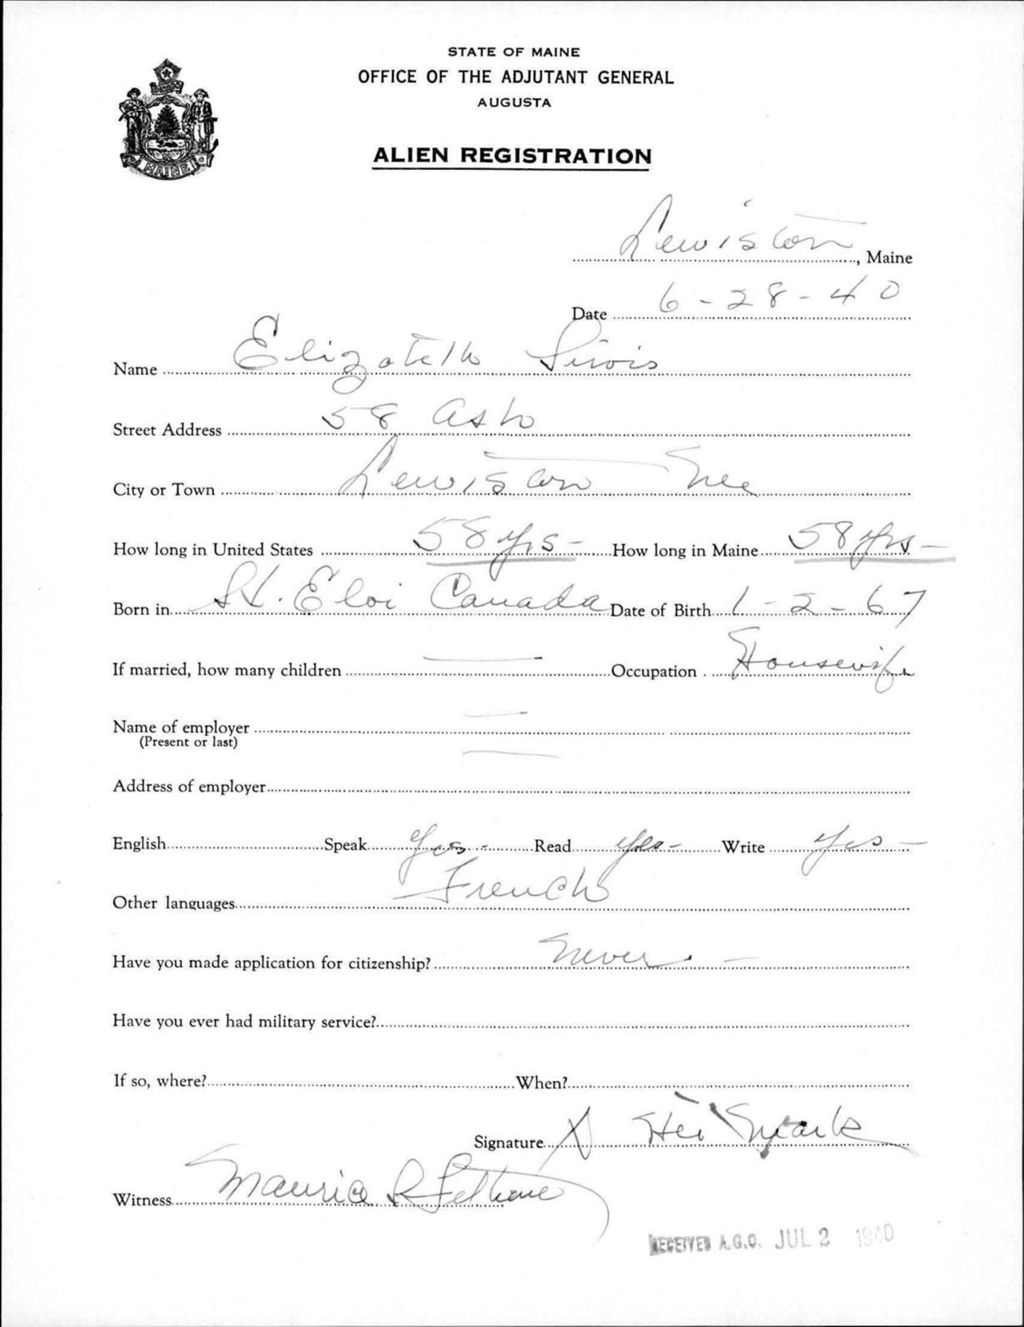 STATE OF MAINE
OFFICE OF THE ADJUTANT GENERAL
AUGUSTA
MAINE
ALIEN REGISTRATION
Lewiston, Maine
Date 6-28-40
Name Elizabeth Sirois
Street Address 58 Ash
City or Town Lewiston Me
How long in United States 58 yrs - How long in Maine 58 yrs -
Born in St. Eloi Canada Date of Birth 1-2-67
If married, how many children — Occupation Housewife
Name of employer —
(Present or last)
Address of employer —
English Speak Yes - Read Yes - Write Yes -
Other languages French
Have you made application for citizenship? Never -
Have you ever had military service?
If so, where? When?
Signature X Her Mark
Witness Maurice
RECEIVED A.G.O. JUL 2 1940